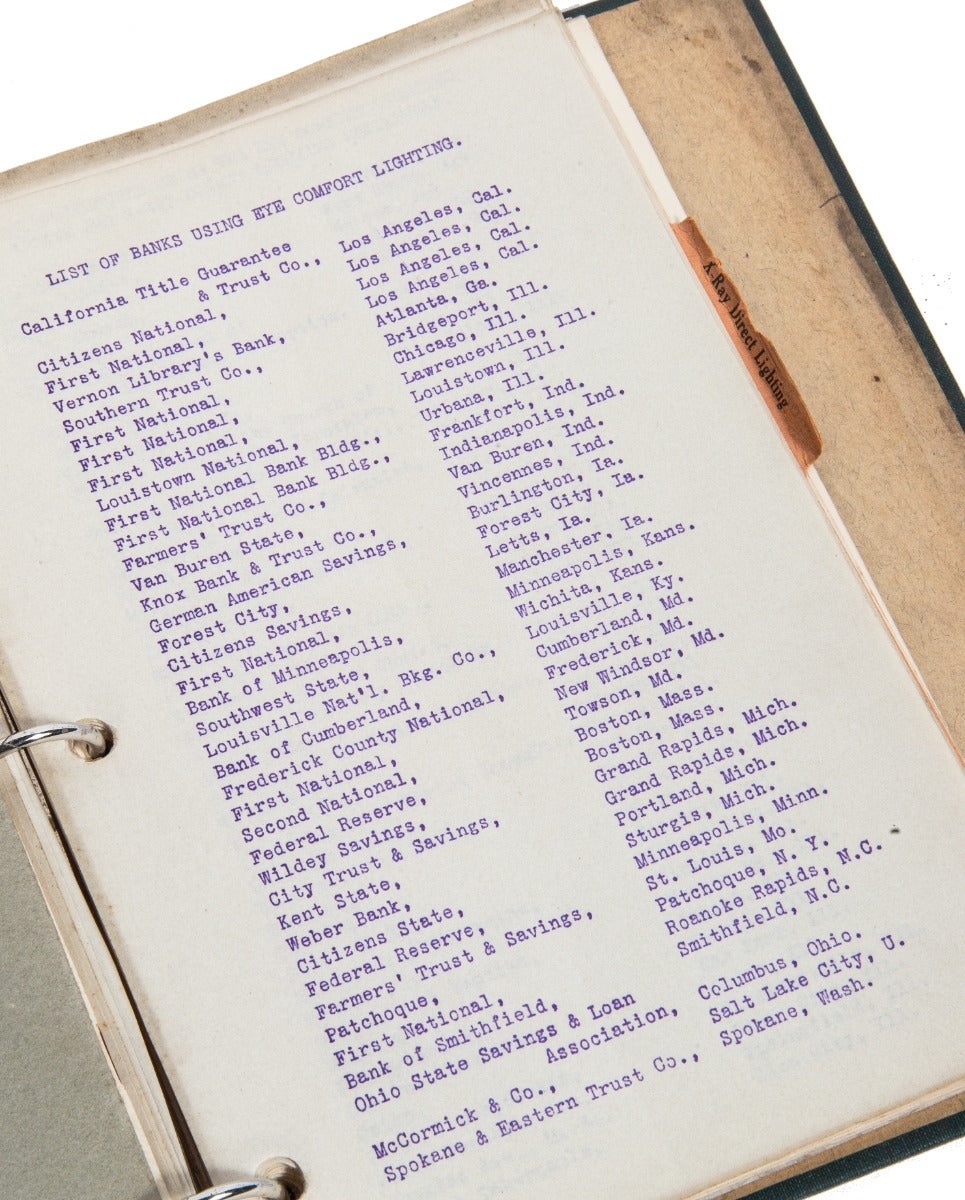 LIST OF BANKS USING EYE COMFORT LIGHTING.
California Title Guarantee
& Trust Co., Los Angeles, Cal.
Citizens National, Los Angeles, Cal.
First National, Los Angeles, Cal.
Vernon Library's Bank, Los Angeles, Cal.
Southern Trust Co., Atlanta, Ga.
First National, Bridgeport, Ill.
First National, Chicago, Ill.
First National, Lawrenceville, Ill.
Louistown National, Louistown, Ill.
First National Bank Bldg., Urbana, Ill.
First National Bank Bldg., Frankfort, Ind.
Farmers' Trust Co., Indianapolis, Ind.
Van Buren State, Van Buren, Ind.
Knox Bank & Trust Co., Vincennes, Ind.
German American Savings, Burlington, Ia.
Forest City, Forest City, Ia.
Citizens Savings, Letts, Ia.
First National, Manchester, Ia.
Bank of Minneapolis, Minneapolis, Kans.
Southwest State, Wichita, Kans.
Louisville Nat'l. Bkg. Co., Louisville, Ky.
Bank of Cumberland, Cumberland, Md.
Frederick County National, Frederick, Md.
First National, New Windsor, Md.
Second National, Towson, Md.
Federal Reserve, Boston, Mass.
Wildey Savings, Boston, Mass.
City Trust & Savings, Grand Rapids, Mich.
Kent State, Grand Rapids, Mich.
Weber Bank, Portland, Mich.
Citizens State, Sturgis, Mich.
Federal Reserve, Minneapolis, Minn.
Farmers' Trust & Savings, St. Louis, Mo.
Patchoque, Patchoque, N. Y.
First National, Roanoke Rapids, N.C.
Bank of Smithfield, Smithfield, N.C.
Ohio State Savings & Loan
Association, Columbus, Ohio.
McCormick & Co., Salt Lake City, U.
Spokane & Eastern Trust Co., Spokane, Wash.
X-Ray Direct Lighting